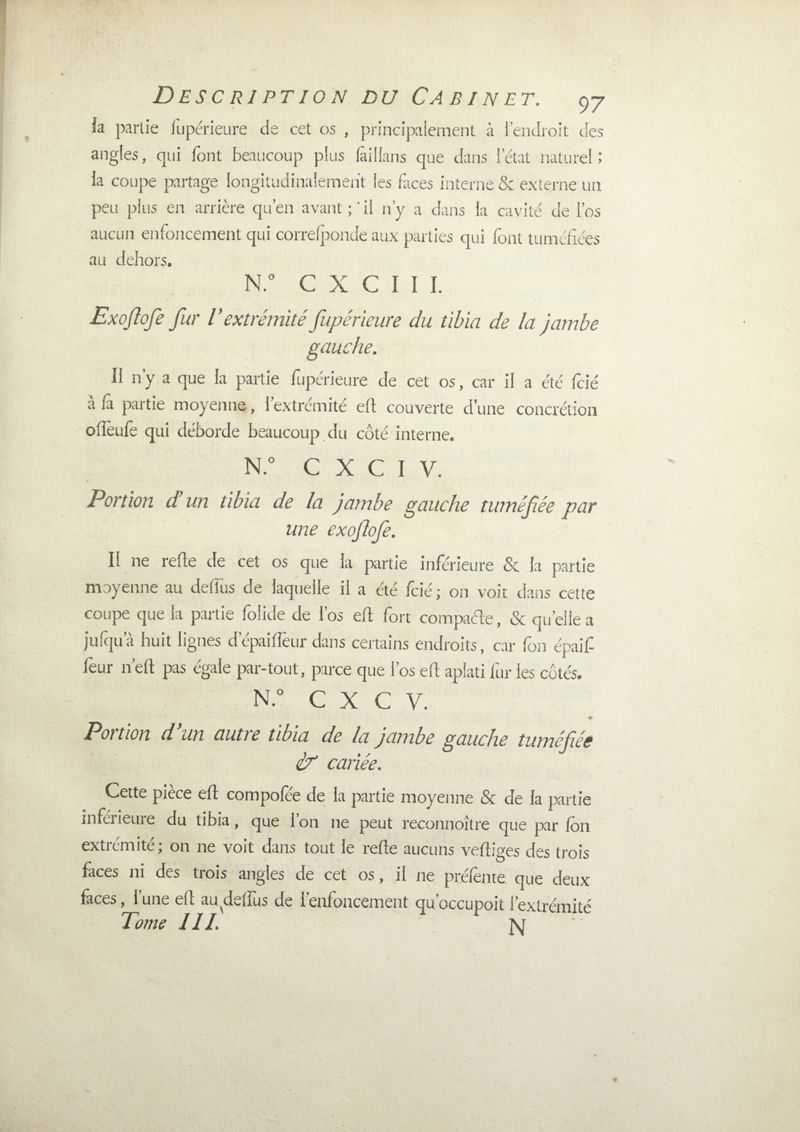 DESCRIPTION DU CABINET. 97
la partie ſupérieure de cet os , principalement à l'endroit des
angles, qui ſont beaucoup plus ſaillans que dans l'état naturel ;
la coupe partage longitudinalement les faces interne & externe un
peu plus en arrière qu'en avant ; il n'y a dans la cavité de l'os
aucun enfoncement qui correſponde aux parties qui ſont tuméfiées
au dehors.
N.° CXCIII.
Exoſtoſe ſur l'extrémité ſupérieure du tibia de la jambe
gauche.
Il n'y a que la partie ſupérieure de cet os, car il a été ſcié
à ſa partie moyenne, l'extrémité eſt couverte d'une concrétion
oſſeuſe qui déborde beaucoup du côté interne.
N.° CXCIV.
Portion d'un tibia de la jambe gauche tuméfiée par
une exoſtoſe.
Il ne reſte de cet os que la partie inférieure & la partie
moyenne au deſſus de laquelle il a été ſcié; on voit dans cette
coupe que la partie ſolide de l'os eſt fort compacte, & qu'elle a
juſqu'à huit lignes d'épaiſſeur dans certains endroits, car ſon épaiſ-
ſeur n'eſt pas égale par-tout, parce que l'os eſt aplati ſur les côtés.
N.° CXCV.
Portion d'un autre tibia de la jambe gauche tuméfiée
& cariée.
Cette pièce eſt compoſée de la partie moyenne & de la partie
inférieure du tibia, que l'on ne peut reconnoître que par ſon
extrémité; on ne voit dans tout le reſte aucuns veſtiges des trois
faces ni des trois angles de cet os, il ne préſente que deux
faces, l'une eſt au deſſus de l'enfoncement qu'occupoit l'extrémité
Tome III. N